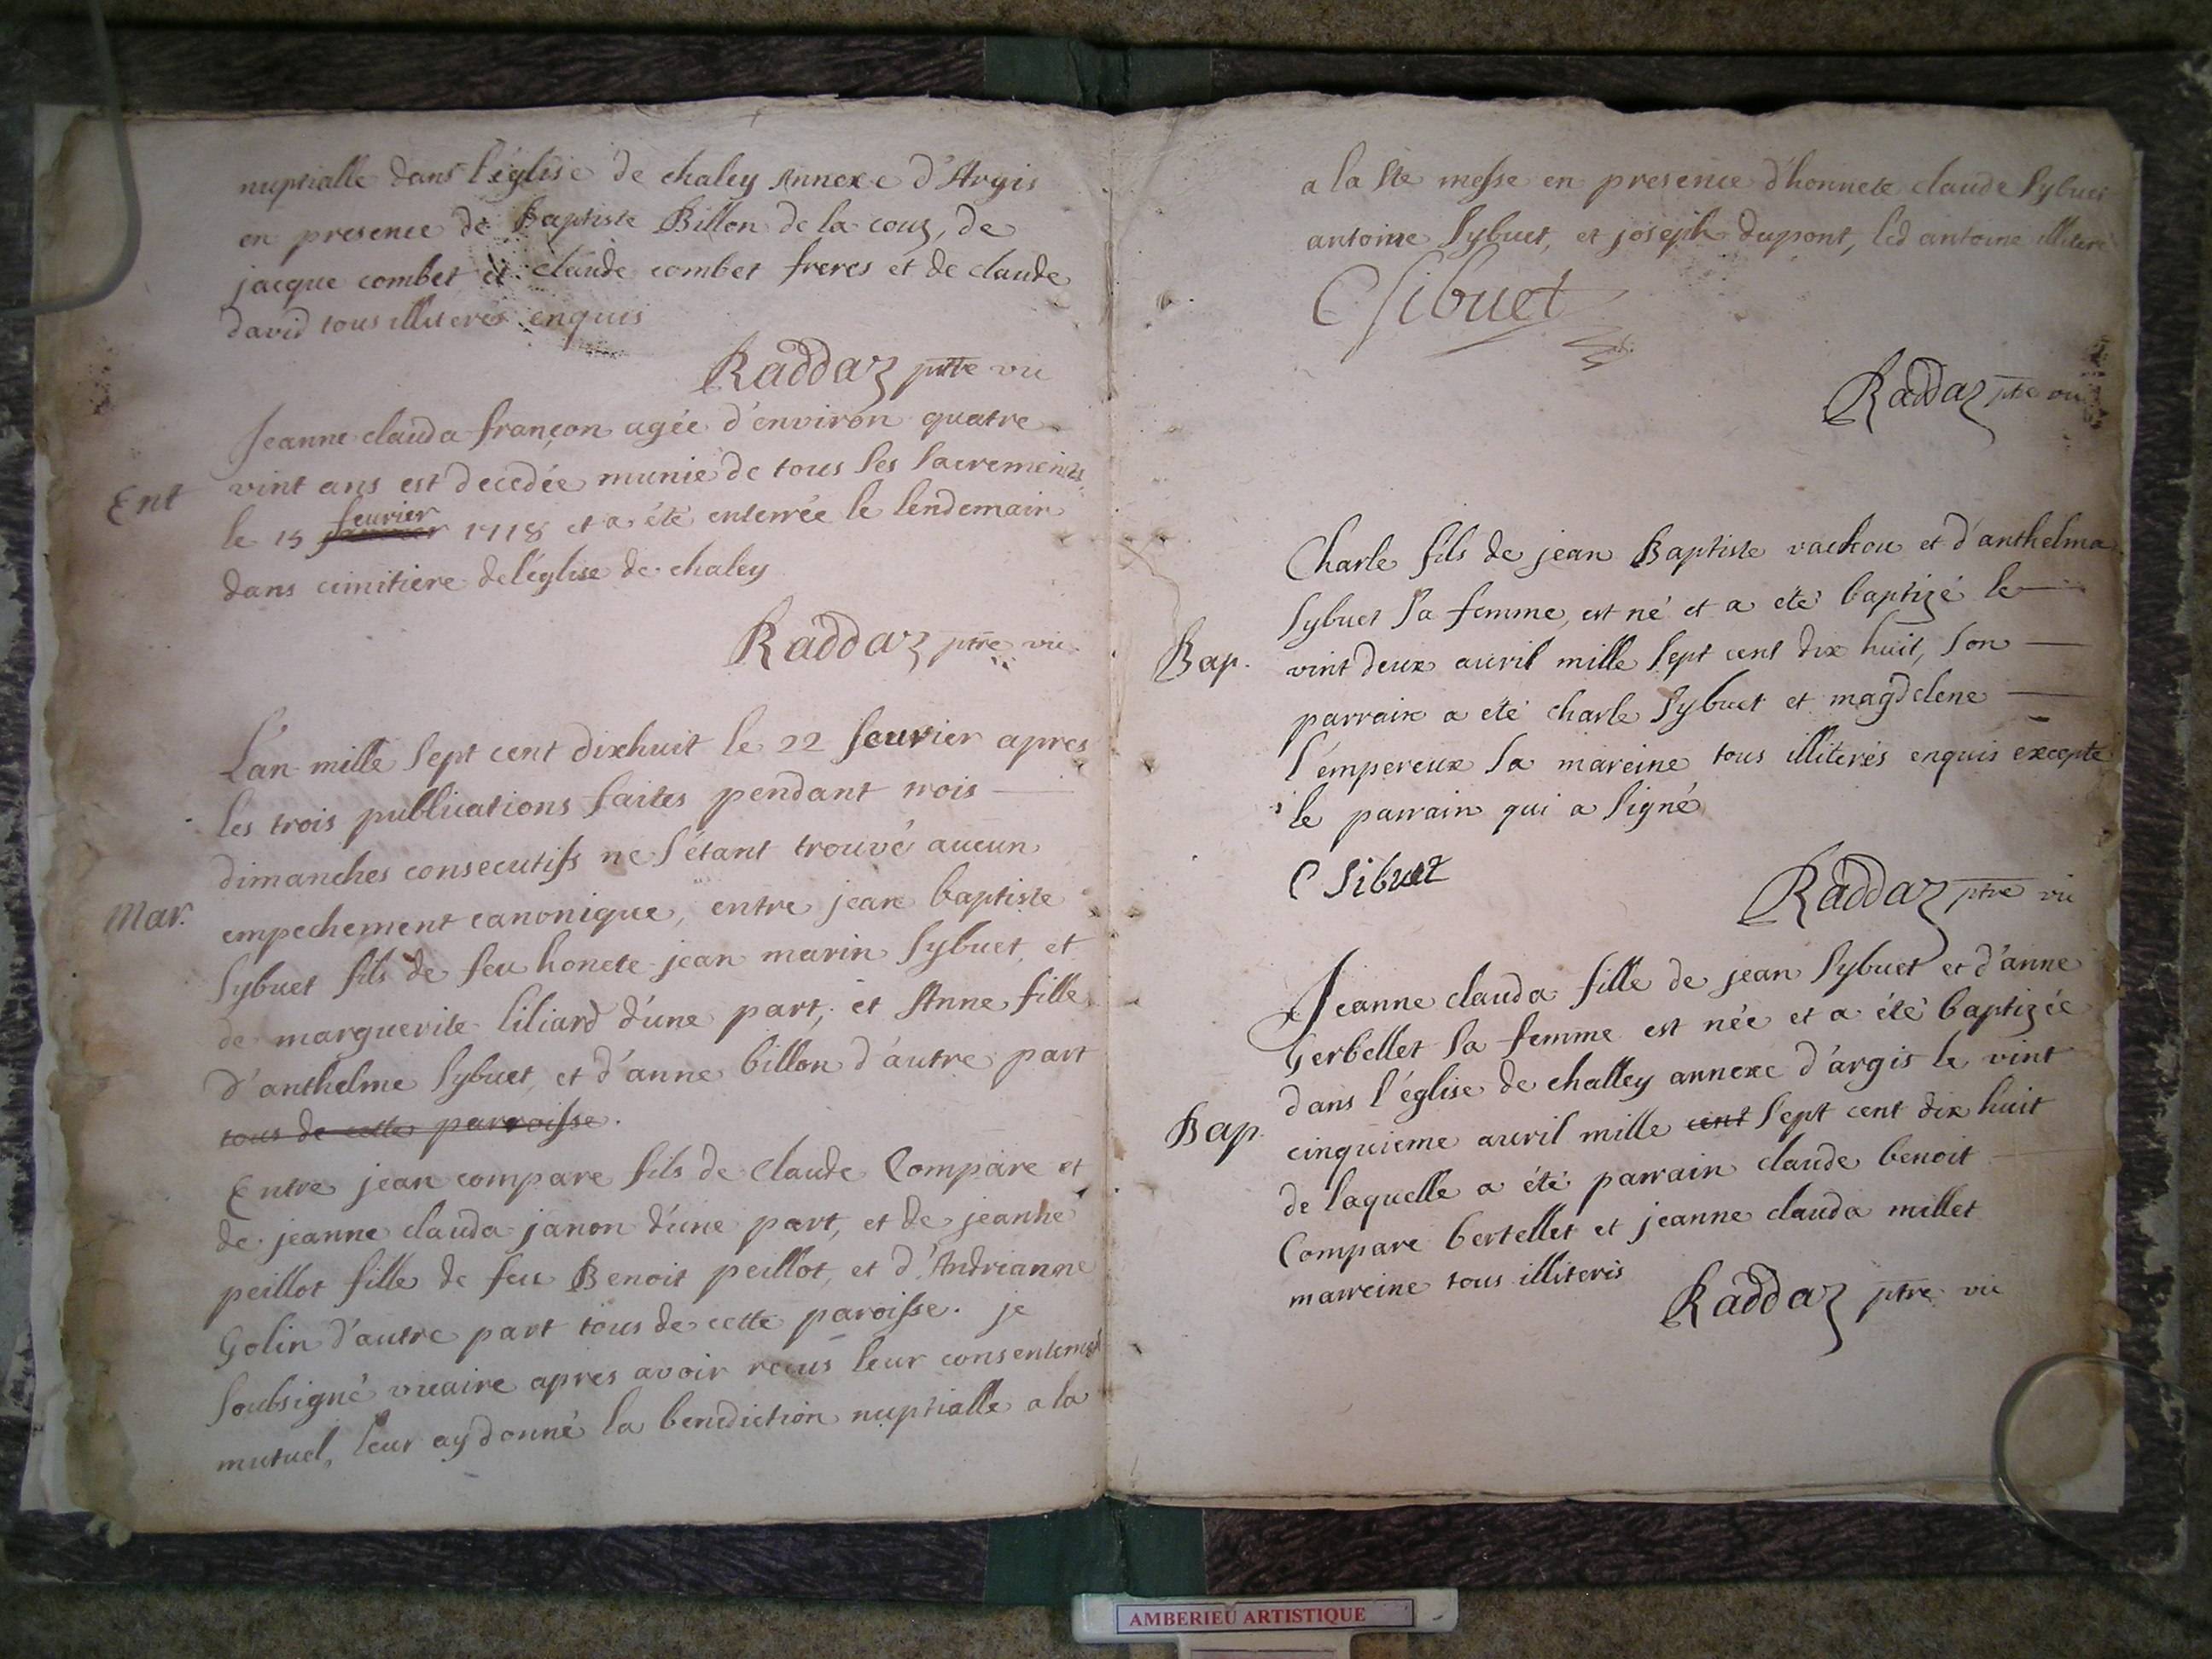 nuptialle dans l'église de chaley Annexe d'Argis
en presence de Baptiste Billon de la couz, de
jacque combet et claude combet freres et de claude
david tous illiterés enquis
Raddaz ptre vic
Jeanne clauda françon agée d'environ quatre
Ent
vint ans est decedée munie de tous ses sacrements
fevrier
le 15 janvier 1718 et a été enterrée le lendemain
dans cimitiere de l'église de chaley
Raddaz ptre vic
L'an mille sept cent dixhuit le 22 fevrier apres
les trois publications faites pendant trois
dimanches consecutifs ne s'étant trouvé aucun
Mar.
empechement canonique, entre jean baptiste
Sybuet fils de feu honete jean marin Sybuet, et
de marguerite liliard d'une part, et Anne fille
d'anthelme Sybuet, et d'anne billon d'autre part
tous de cette parroisse.
Entre jean compare fils de Claude Compare et
de jeanne clauda janon d'une part, et de jeanne
peillot fille de feu Benoit peillot, et d'Andrianne
Golin d'autre part tous de cette paroisse. je
soubsigné vicaire apres avoir recus leur consentement
mutuel, leur ay donné la benediction nuptialle a la
a la Ste messe en presence d'honnete claude Sybuet
antoine Sybuet, et joseph dupont, led antoine illiteré
C Sibuet
Raddaz ptre vic
Charle fils de jean Baptiste vachou et d'anthelma
Sybuet sa femme, est né et a eté baptizé le
Bap.
vint deux avril mille sept cent dix huit, son
parrain a eté charle Sybuet et magdelene
l'empereux sa mareine tous illiterés enquis excepté
le parrain qui a signé
C Sibuet
Raddaz ptre vic
Jeanne clauda fille de jean Sybuet et d'anne
Gerbellet sa femme est née et a été baptizée
dans l'église de challey annexe d'argis le vint
Bap.
cinquieme avril mille cent sept cent dix huit
de laquelle a été parrain claude benoit
Compare bertellet et jeanne clauda millet
marreine tous illiteris
Raddaz ptre vic
AMBERIEU ARTISTIQUE